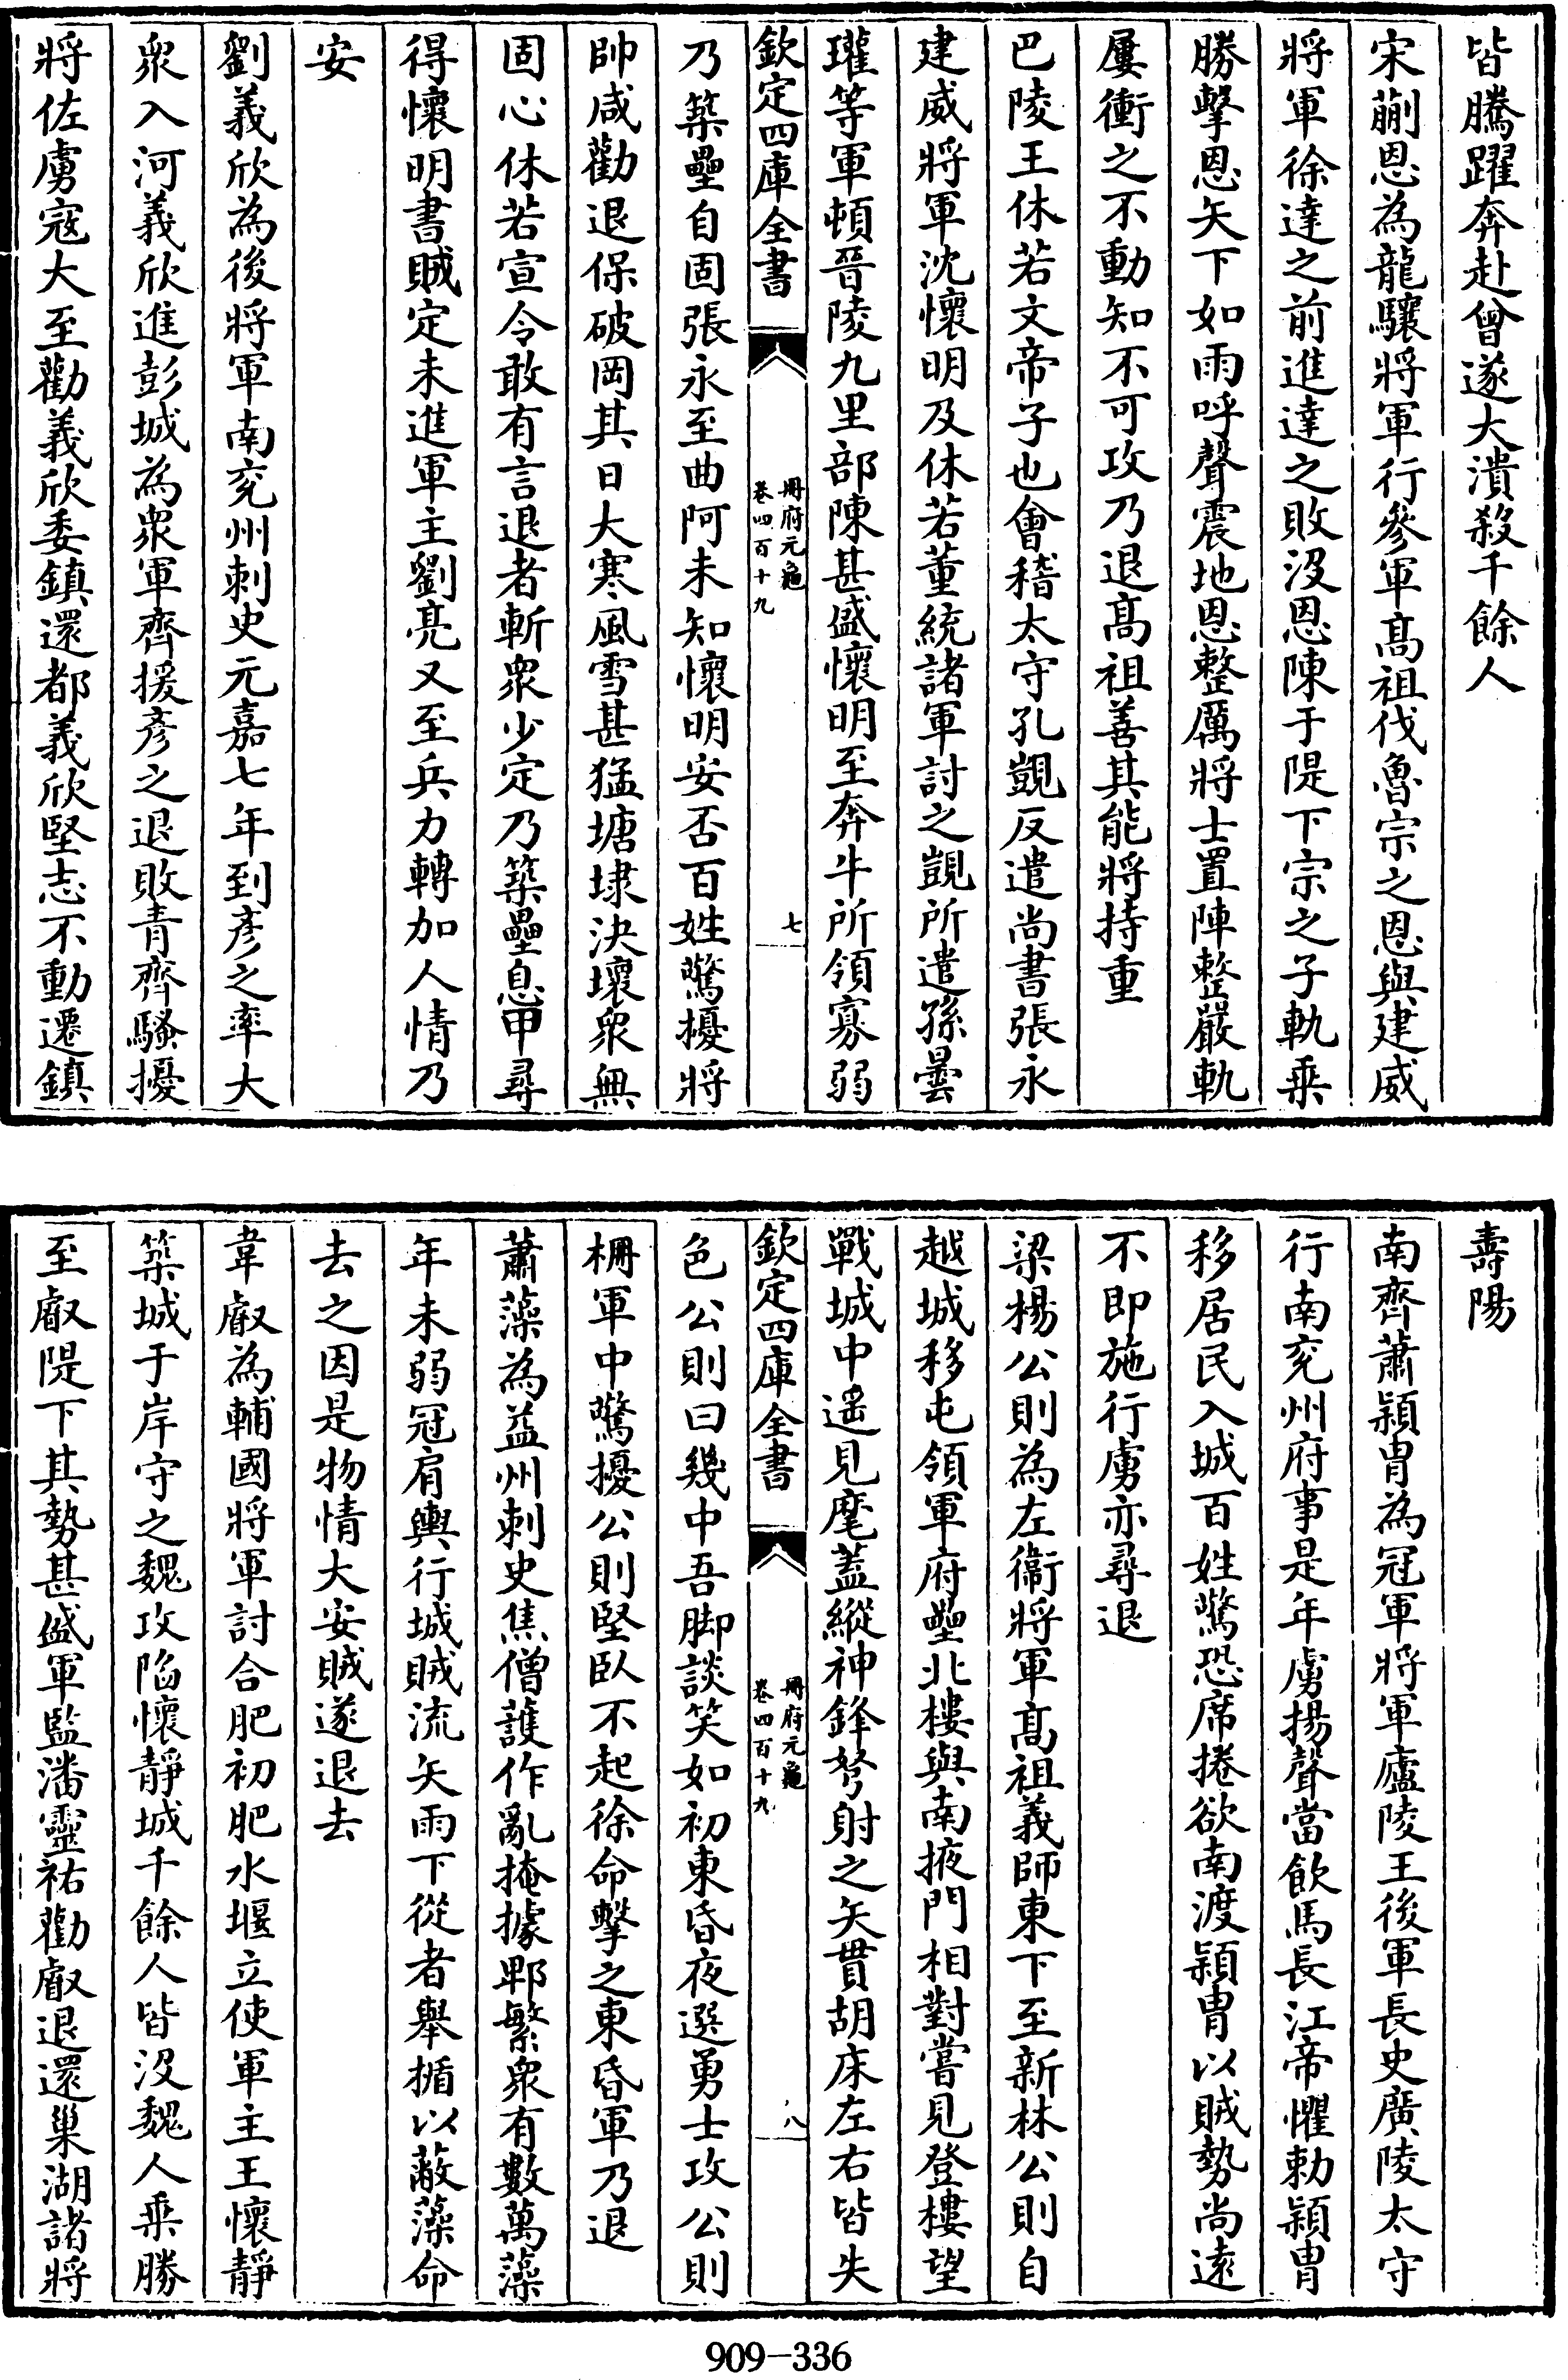 皆騰躍奔赴曾遂大潰殺千餘人
宋蒯恩為龍驤將軍行參軍髙祖伐魯宗之恩與建威
將軍徐逹之前進逹之敗沒恩陳于隄下宗之子軌乗
勝擊恩矢下如雨呼聲震地恩整厲將士置陣整嚴軌
屢衝之不動知不可攻乃退髙祖善其能將持重
巴陵王休若文帝子也會稽太守孔覬反遣尚書張永
建威將軍沈懷明及休若董統諸軍討之覬所遣孫曇
瓘等軍頓晉陵九里部陳甚盛懷明至奔牛所領寡弱
欽定四庫全書
冊府元龜
卷四百十九
七
乃築壘自固張永至曲阿未知懷明安否百姓驚擾將
帥咸勸退保破岡其日大寒風雪甚猛塘埭決壞衆無
固心休若宣令敢有言退者斬衆少定乃築壘息甲尋
得懷明書賊定未進軍主劉亮又至兵力轉加人情乃
安
劉義欣為後將軍南兗州刺史元嘉七年到彥之率大
衆入河義欣進彭城為衆軍齊援彥之退敗青齊騷擾
將佐虜寇大至勸義欣委鎮還都義欣堅志不動遷鎮
壽陽
南齊蕭頴胄為冠軍將軍廬陵王後軍長史廣陵太守
行南兗州府事是年虜揚聲當飲馬長江帝懼勅頴胄
移居民入城百姓驚恐席捲欲南渡頴胄以賊勢尚逺
不即施行虜亦尋退
梁楊公則為左衞將軍髙祖義師東下至新林公則自
越城移屯領軍府壘北樓與南掖門相對嘗見登樓望
戰城中遥見麾蓋縱神鋒弩射之矢貫胡床左右皆失
欽定四庫全書
冊府元龜
卷四百十九
八
色公則曰幾中吾脚談笑如初東昏夜選勇士攻公則
柵軍中驚擾公則堅臥不起徐命擊之東昏軍乃退
蕭藻為益州刺史焦僧護作亂掩據郫繁衆有數萬藻
年未弱冠肩輿行城賊流矢雨下從者舉楯以蔽藻命
去之因是物情大安賊遂退去
韋叡為輔國將軍討合肥初肥水堰立使軍主王懷靜
築城于岸守之魏攻陷懷靜城千餘人皆沒魏人乗勝
至叡隄下其勢甚盛軍監潘靈祐勸叡退還巢湖諸將
909-336